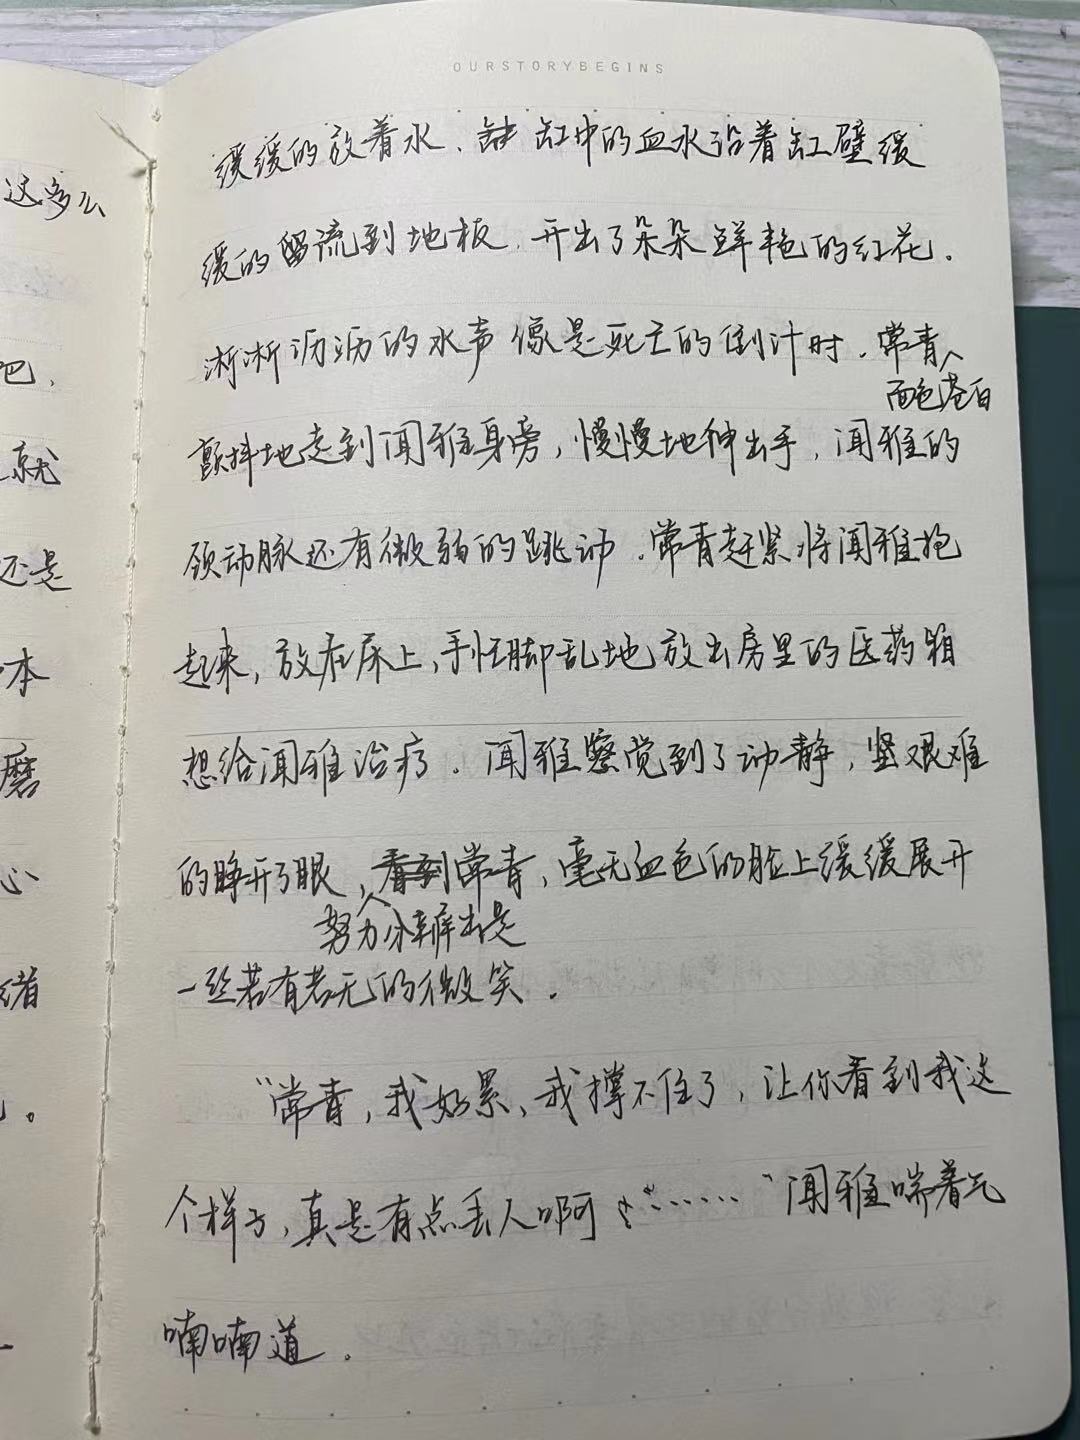 OURSTORYBEGINS
缓缓的放着水、缸中的血水沿着缸壁缓
缓的流到地板，开出了朵朵鲜艳的红花．
淅淅沥沥的水声像是死亡的倒计时．常青
面色苍白
颤抖地走到闻雅身旁，慢慢地伸出手，闻雅的
颈动脉还有微弱的跳动．常青赶紧将闻雅抱
起来，放在床上，手忙脚乱地放出房里的医药箱
想给闻雅治疗．闻雅察觉到了动静，坚艰难
的睁开了眼，看到常青，毫无血色的脸上缓缓展开
努力分辨出是
一丝若有若无的微笑．
“常青，我好累、我撑不住了，让你看到我这
个样子，真是有点丢人啊……”闻雅喘着气
喃喃道．
这多么
吧，
就
还是
本
磨
心
绪
。